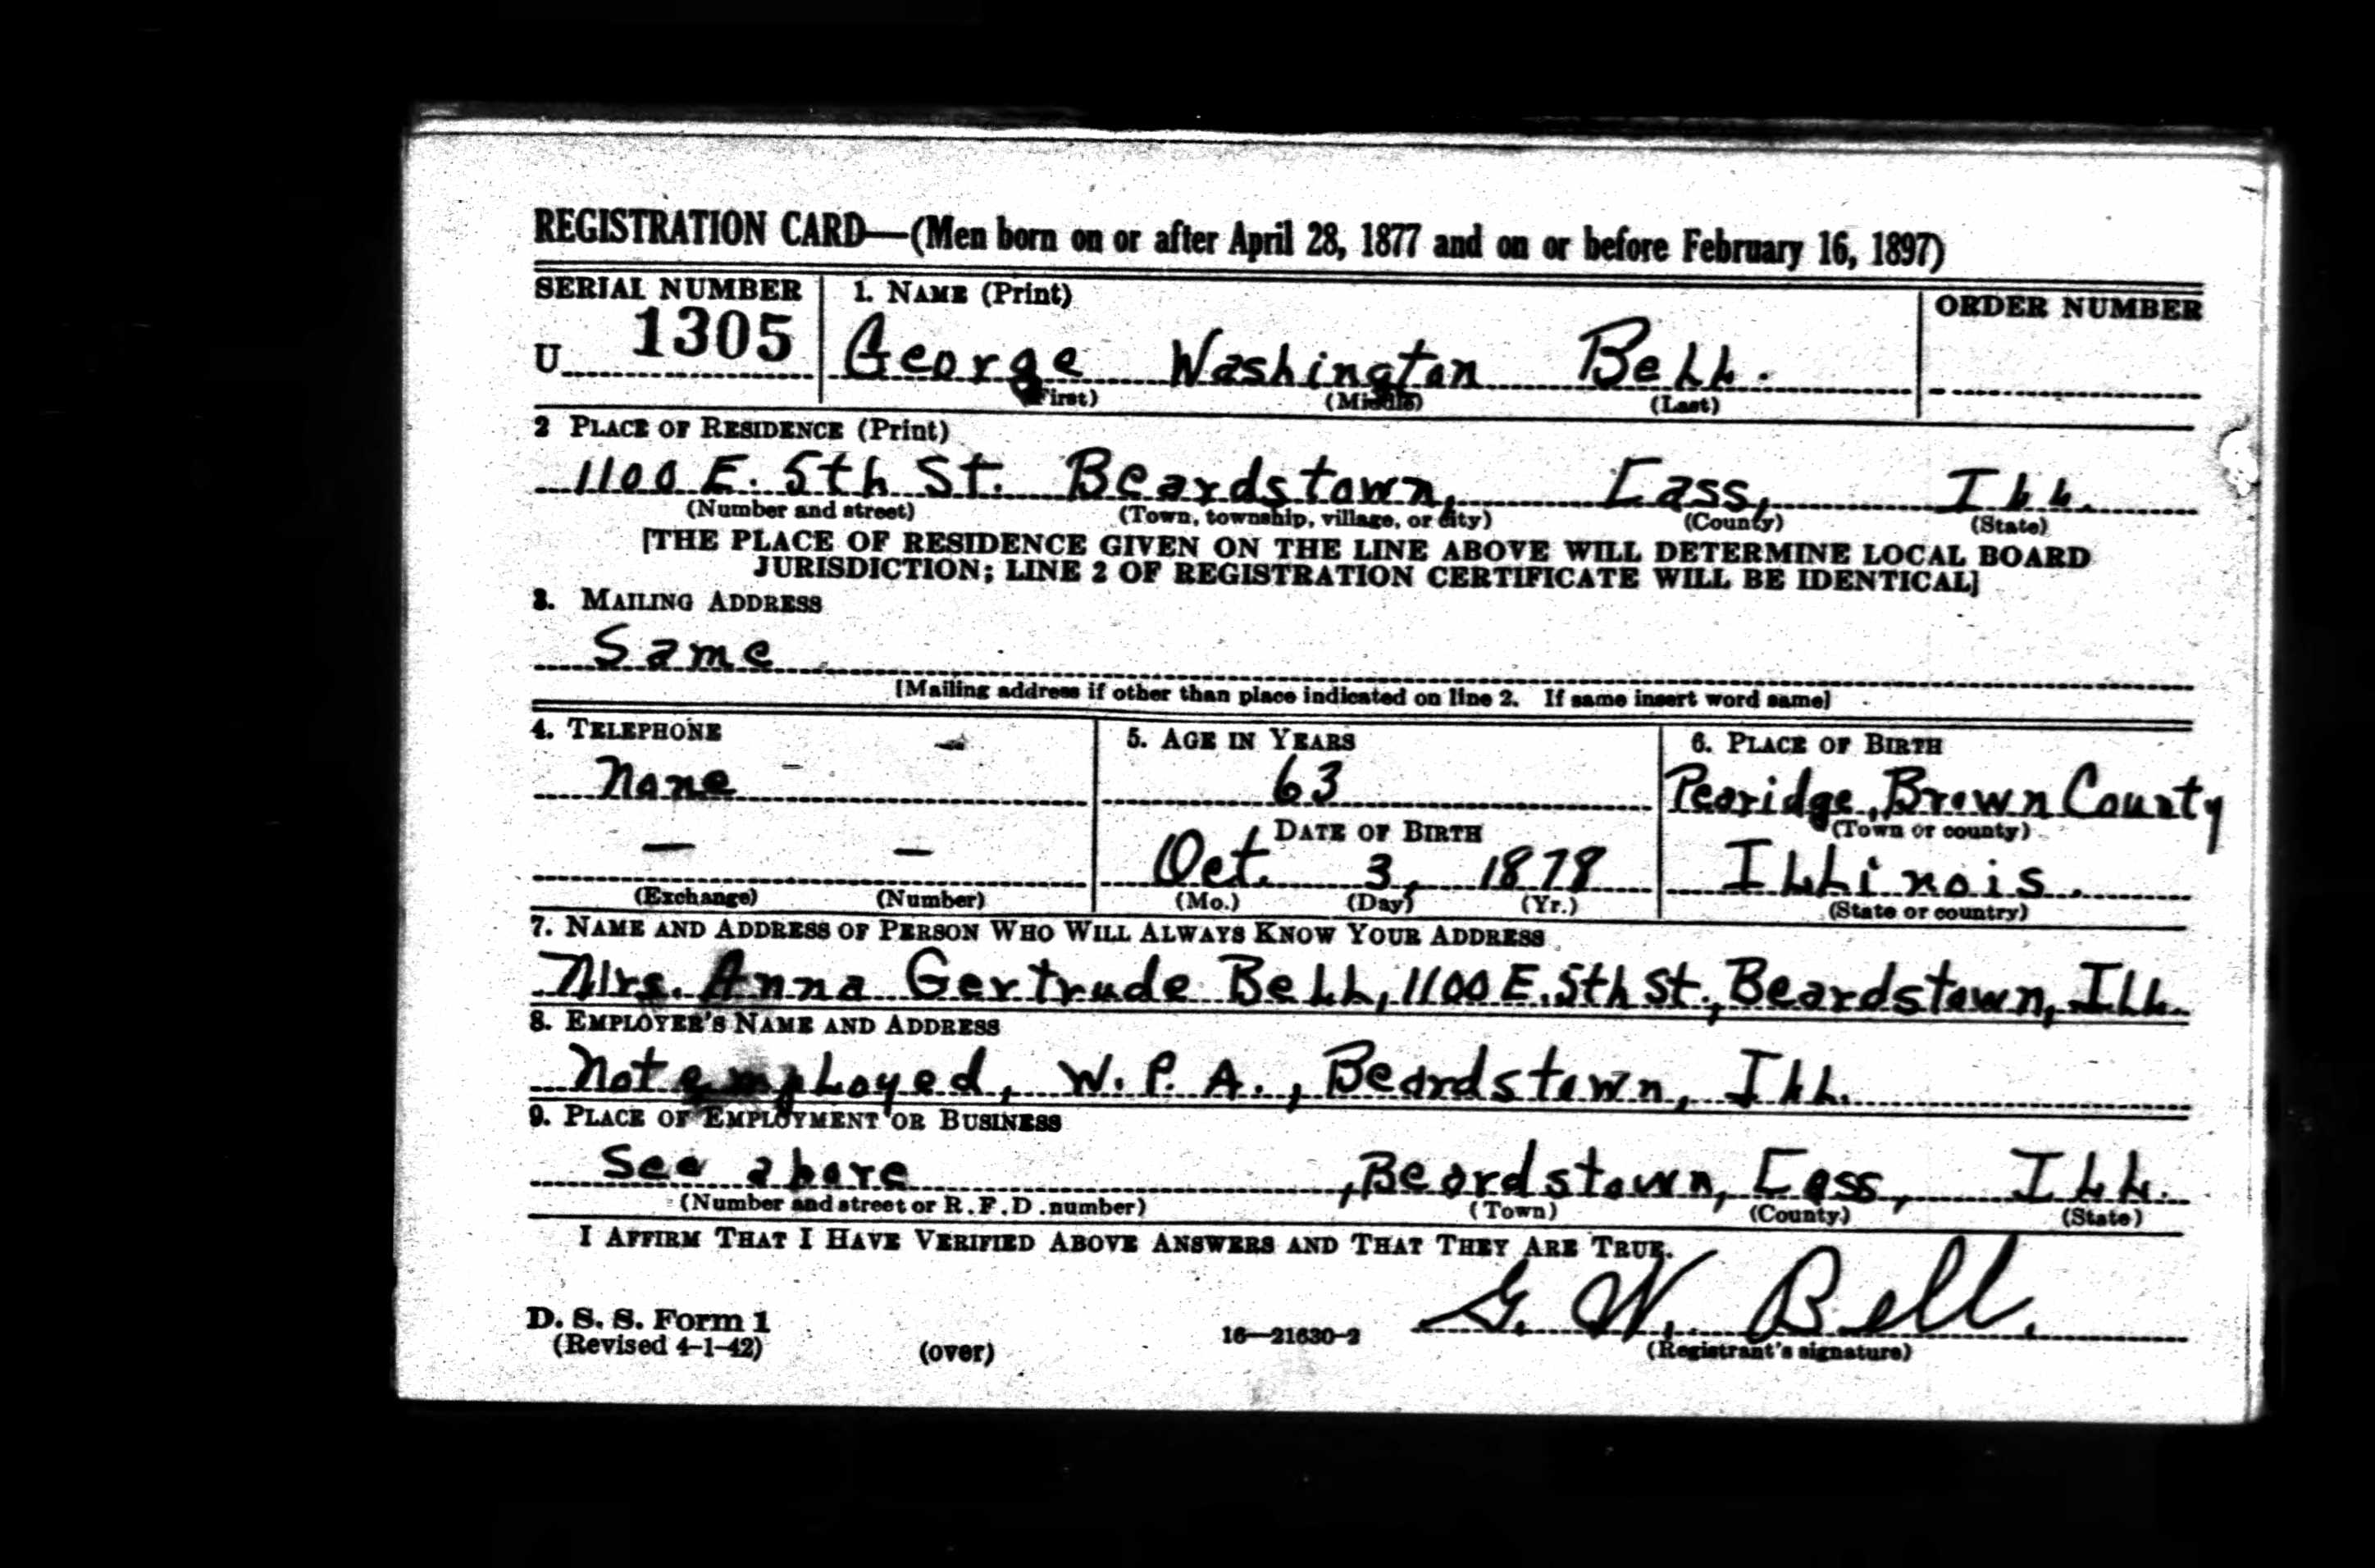 REGISTRATION CARD—(Men born on or after April 28, 1877 and on or before February 16, 1897)
SERIAL NUMBER 1. NAME (Print) ORDER NUMBER
U 1305 George Washington Bell.
(First) (Middle) (Last)
2 PLACE OF RESIDENCE (Print)
1100 E. 5th St. Beardstown, Cass, Ill.
(Number and street) (Town, township, village, or city) (County) (State)
[THE PLACE OF RESIDENCE GIVEN ON THE LINE ABOVE WILL DETERMINE LOCAL BOARD
JURISDICTION; LINE 2 OF REGISTRATION CERTIFICATE WILL BE IDENTICAL]
3. MAILING ADDRESS
Same
[Mailing address if other than place indicated on line 2. If same insert word same]
4. TELEPHONE 5. AGE IN YEARS 6. PLACE OF BIRTH
None 63 Pearidge, Brown County
DATE OF BIRTH (Town or county)
— — Oct. 3, 1878 Illinois.
(Exchange) (Number) (Mo.) (Day) (Yr.) (State or country)
7. NAME AND ADDRESS OF PERSON WHO WILL ALWAYS KNOW YOUR ADDRESS
Mrs. Anna Gertrude Bell, 1100 E. 5th St., Beardstown, Ill.
8. EMPLOYER'S NAME AND ADDRESS
Not employed, W. P. A., Beardstown, Ill.
9. PLACE OF EMPLOYMENT OR BUSINESS
See above , Beardstown, Cass, Ill.
(Number and street or R. F. D. number) (Town) (County) (State)
I AFFIRM THAT I HAVE VERIFIED ABOVE ANSWERS AND THAT THEY ARE TRUE.
G. W. Bell.
D. S. S. Form 1
(Revised 4-1-42) (over) 16—21630-2 (Registrant's signature)